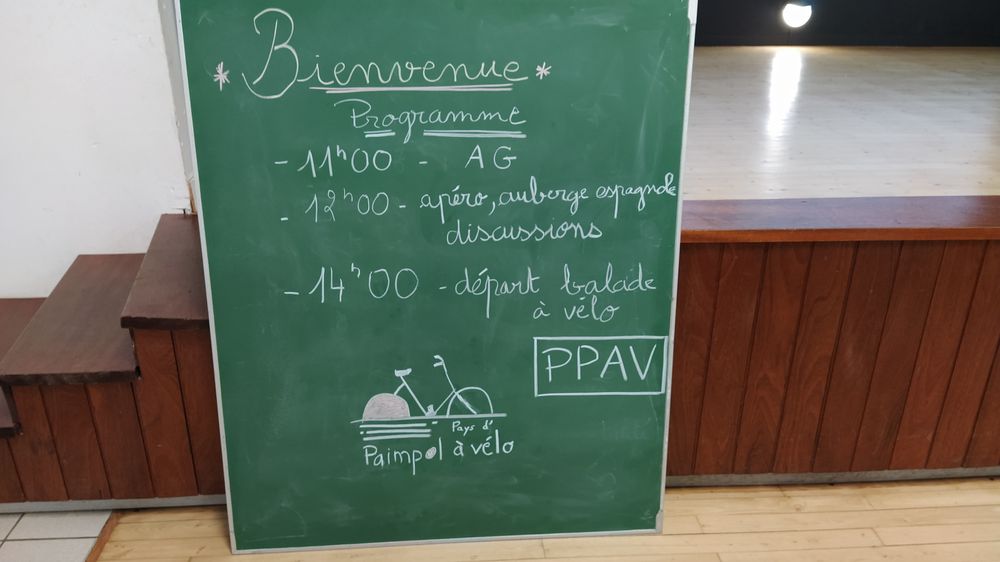 * Bienvenue *
Programme
- 11h00 - AG
- 12h00 - apéro, auberge espagnole
discussions
- 14h00 - départ balade
à vélo
PPAV
Pays d'
Paimpol à vélo